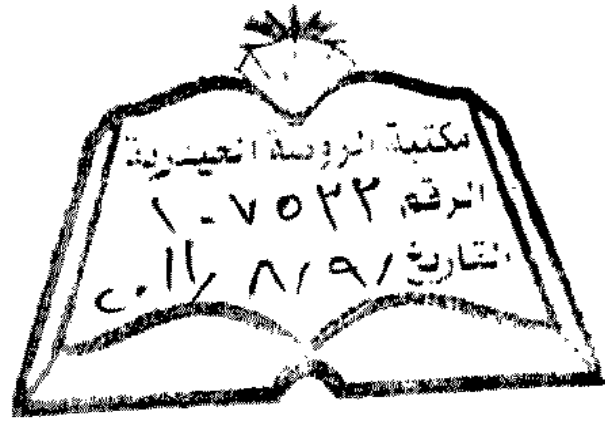 مكتبة الروضة الحيدرية
الرقم ١٠٧٥٣٣
التاريخ ٨/٩/٢٠١١